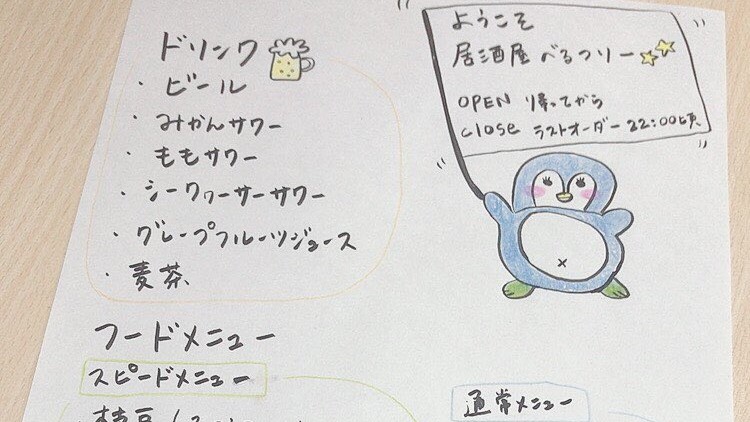 ドリンク
・ビール
・みかんサワー
・ももサワー
・シークヮーサーサワー
・グレープフルーツジュース
・麦茶
フードメニュー
スピードメニュー
枝豆
ようこそ
居酒屋 べるつリー
OPEN 帰ってから
close ラストオーダー 22:00頃
通常メニュー